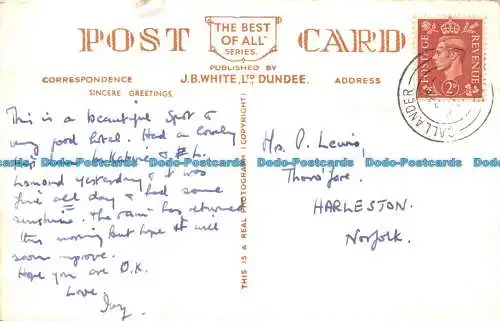 POST CARD
THE BEST
OF ALL
SERIES.
PUBLISHED BY
J.B. WHITE, LTD DUNDEE.
CORRESPONDENCE
ADDRESS
SINCERE GREETINGS.
POSTAGE
REVENUE
2D
CALLANDER
THIS IS A REAL PHOTOGRAPH (COPYRIGHT)
This is a beautiful spot &
very good hotel. Had a lovely
Katrine & L.
Lomond yesterday & it was
fine all day & had some
sunshine. The rain has returned
this morning but hope it will
soon improve.
Hope you are O.K.
Love,
Mrs. P. Lewis,
Thoro'fare,
HARLESTON.
Norfolk.
Dodo-Postcards Dodo-Postcards Dodo-Postcards Dodo-Postcards